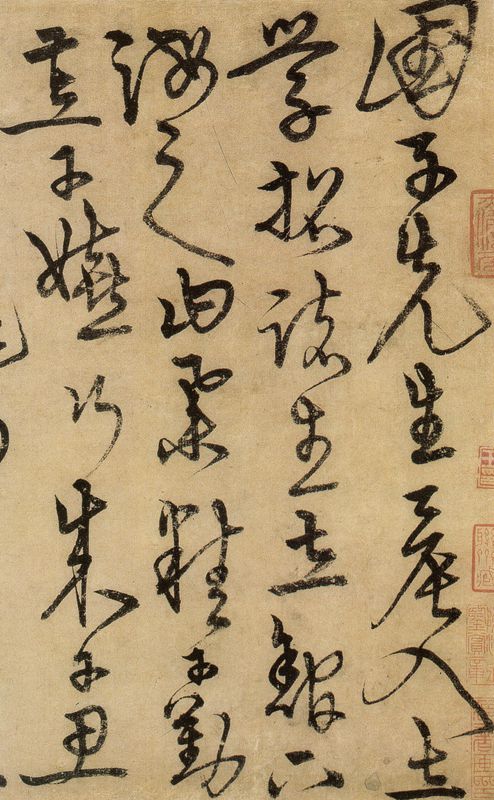 國子先生晨入太
學招諸生立館下
誨之曰業精于勤
荒于嬉行成于思